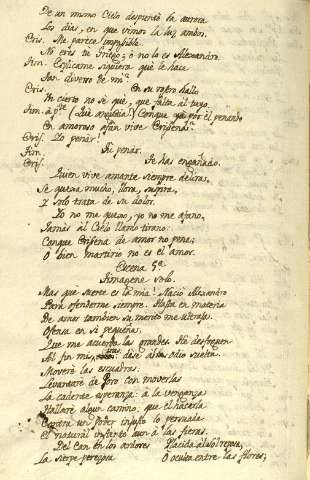 De un mismo Cielo despuntó la aurora
Los dias, en que vimos la luz ambos.
Cris. Me parece impossible.
No eres tu Griego; ó no lo es Alexandro
Tim. Esplicame siquiera que le hace
Tan diverso de mi?
Cris. En su rostro hallo
Un cierto no sé qué, que falta al tuyo.
Tim. á pte. (Qué angustia!) Conque ya por él penando
En amoroso afan vive Crisena?
Cris. Yo penar!
Tim. Tu penar.
Cris. Te has engañado.
Quien vive amante siempre delira,
Se quexa mucho, llora, suspira,
Y solo trata de su dolor.
Yo no me quexo, yo no me afano,
Jamás al Cielo llamo tirano:
Conque Crisena de amor no pena;
O bien martirio no es el amor.
Escena 5ª
Timagene solo.
Mas que suerte es la mia! Nació Alexandro
Para ofenderme siempre. Hasta en materia
De amor tambien su merito me ultraja.
Ofensa en si pequeña;
Que me acuerda las grandes
Al fin mi dese al odio suelta.
Moveré las esquadras.
Levantaré de Poro con moverlas
La caliente esperanza á la venganza
Hallaré algun camino; que el hacerla
Contra un Poder injusto lo persuade
El natural instinto aun á las fieras.
Del Can en los ardores Placida al sol reposa,
La sierpe perezosa O oculta entre las flores;